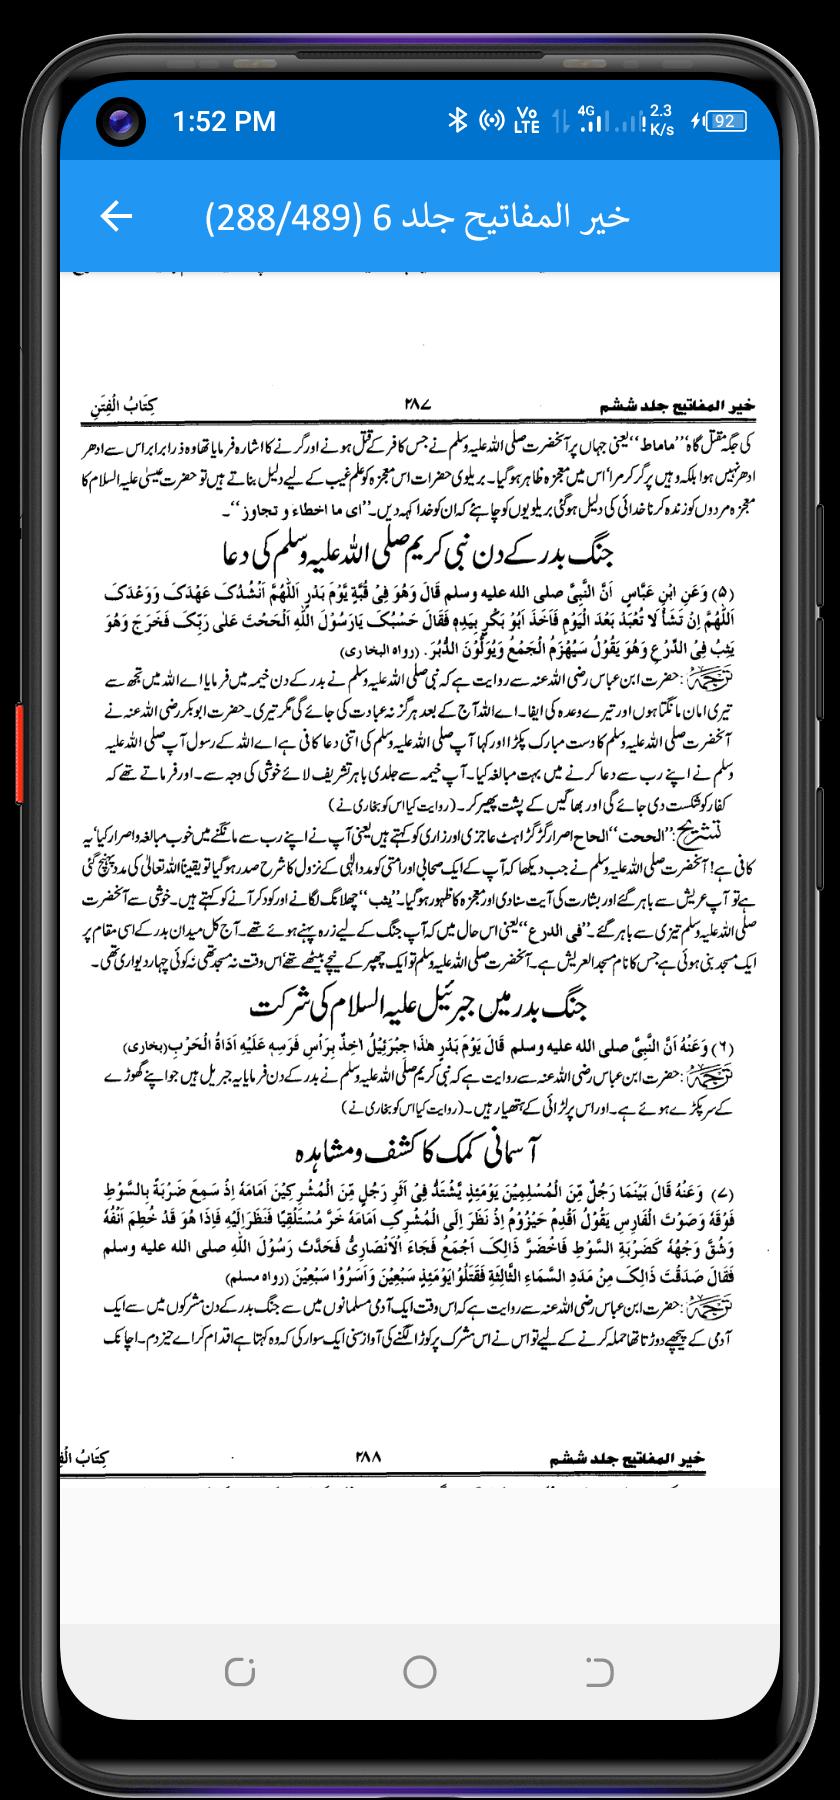 1:52 PM
Vo LTE 4G 2.3 K/s 92
خیر المفاتیح جلد 6 (288/489)
خیر المفاتیح جلد ششم ۲۸۷ کِتَابُ الْفِتَنِ
کی جگہ مقتل گاہ ’’ماماط‘‘ یعنی جہاں پر آنحضرت صلی اللہ علیہ وسلم نے جس کافر کے قتل ہونے اور گرنے کا اشارہ فرمایا تھا وہ ذرا برابر اس سے ادھر
ادھر نہیں ہوا بلکہ وہیں پر گر کر مرا اس میں معجزہ ظاہر ہو گیا۔ بریلوی حضرات اس معجزہ کو علم غیب کے لیے دلیل بناتے ہیں تو حضرت عیسیٰ علیہ السلام کا
معجزہ مردوں کو زندہ کرنا خدائی کی دلیل ہو گئی بریلویوں کو چاہئے کہ ان کو خدا کہہ دیں۔ ’’ای ما اخطاء و تجاوز‘‘۔
جنگ بدر کے دن نبی کریم صلی اللہ علیہ وسلم کی دعا
(۵) وَعَنِ ابْنِ عَبَّاسٍ اَنَّ النَّبِیَّ صلی الله علیه وسلم قَالَ وَهُوَ فِیْ قُبَّةٍ یَّوْمَ بَدْرٍ اَللّٰهُمَّ اَنْشُدُکَ عَهْدَکَ وَوَعْدَکَ
اَللّٰهُمَّ اِنْ تَشَأْ لَا تُعْبَدْ بَعْدَ الْیَوْمِ فَاَخَذَ اَبُوْ بَکْرٍ بِیَدِهٖ فَقَالَ حَسْبُکَ یَارَسُوْلَ اللّٰهِ اَلْحَحْتَ عَلٰی رَبِّکَ فَخَرَجَ وَهُوَ
یَثِبُ فِی الدِّرْعِ وَهُوَ یَقُوْلُ سَیُهْزَمُ الْجَمْعُ وَیُوَلُّوْنَ الدُّبُرَ. (رواه البخاری)
ترجمہ: حضرت ابن عباس رضی اللہ عنہ سے روایت ہے کہ نبی صلی اللہ علیہ وسلم نے بدر کے دن خیمہ میں فرمایا اے اللہ میں تجھ سے
تیری امان مانگتا ہوں اور تیرے وعدہ کی ایفا۔ اے اللہ آج کے بعد ہرگز نہ عبادت کی جائے گی مگر تیری۔ حضرت ابوبکر رضی اللہ عنہ نے
آنحضرت صلی اللہ علیہ وسلم کا دست مبارک پکڑا اور کہا آپ صلی اللہ علیہ وسلم کی اتنی دعا کافی ہے اے اللہ کے رسول آپ صلی اللہ علیہ
وسلم نے اپنے رب سے دعا کرنے میں بہت مبالغہ کیا۔ آپ خیمہ سے جلدی باہر تشریف لائے خوشی کی وجہ سے۔ اور فرماتے تھے کہ
کفار کو شکست دی جائے گی اور بھاگیں گے پشت پھیر کر۔ (روایت کیا اس کو بخاری نے)
تشریح: ’’الححت‘‘ الحاح اصرار گڑگڑاہٹ عاجزی اور زاری کو کہتے ہیں یعنی آپ نے اپنے رب سے مانگنے میں خوب مبالغہ و اصرار کیا یہ
کافی ہے! آنحضرت صلی اللہ علیہ وسلم نے جب دیکھا کہ آپ کے ایک صحابی اور امتی کو مدد الٰہی کے نزول کا شرح صدر ہو گیا تو یقیناً اللہ تعالیٰ کی مدد پہنچ گئی
ہے تو آپ عریش سے باہر گئے اور بشارت کی آیت سنا دی اور معجزہ کا ظہور ہو گیا۔ ’’یثب‘‘ چھلانگ لگانے اور کود کر آنے کو کہتے ہیں۔ خوشی سے آنحضرت
صلی اللہ علیہ وسلم تیزی سے باہر گئے۔ ’’فی الدرع‘‘ یعنی اس حال میں کہ آپ جنگ کے لیے زرہ پہنے ہوئے تھے۔ آج کل میدان بدر کے اسی مقام پر
ایک مسجد بنی ہوئی ہے جس کا نام مسجد العریش ہے۔ آنحضرت صلی اللہ علیہ وسلم تو ایک چھپر کے نیچے بیٹھے تھے اس وقت نہ مسجد تھی نہ کوئی چہار دیواری تھی۔
جنگ بدر میں جبرئیل علیہ السلام کی شرکت
(۶) وَعَنْهُ اَنَّ النَّبِیَّ صلی الله علیه وسلم قَالَ یَوْمَ بَدْرٍ هٰذَا جِبْرَئِیْلُ اٰخِذٌ بِرَاْسِ فَرَسِهٖ عَلَیْهِ اَدَاةُ الْحَرْبِ (بخاری)
ترجمہ: حضرت ابن عباس رضی اللہ عنہ سے روایت ہے کہ نبی کریم صلی اللہ علیہ وسلم نے بدر کے دن فرمایا یہ جبریل ہیں جو اپنے گھوڑے
کے سر پکڑے ہوئے ہے۔ اور اس پر لڑائی کے ہتھیار ہیں۔ (روایت کیا اس کو بخاری نے)
آسمانی کمک کا کشف و مشاہدہ
(۷) وَعَنْهُ قَالَ بَیْنَمَا رَجُلٌ مِّنَ الْمُسْلِمِیْنَ یَوْمَئِذٍ یَّشْتَدُّ فِیْ اَثَرِ رَجُلٍ مِّنَ الْمُشْرِکِیْنَ اَمَامَهٗ اِذْ سَمِعَ ضَرْبَةً بِالسَّوْطِ
فَوْقَهٗ وَصَوْتَ الْفَارِسِ یَقُوْلُ اَقْدِمْ حَیْزُوْمُ اِذْ نَظَرَ اِلَی الْمُشْرِکِ اَمَامَهٗ خَرَّ مُسْتَلْقِیًا فَنَظَرَ اِلَیْهِ فَاِذَا هُوَ قَدْ خُطِمَ اَنْفُهٗ
وَشُقَّ وَجْهُهٗ کَضَرْبَةِ السَّوْطِ فَاخْضَرَّ ذَالِکَ اَجْمَعُ فَجَاءَ الْاَنْصَارِیُّ فَحَدَّثَ رَسُوْلَ اللّٰهِ صلی الله علیه وسلم
فَقَالَ صَدَقْتَ ذَالِکَ مِنْ مَدَدِ السَّمَاءِ الثَّالِثَةِ فَقَتَلُوْا یَوْمَئِذٍ سَبْعِیْنَ وَاَسَرُوْا سَبْعِیْنَ (رواه مسلم)
ترجمہ: حضرت ابن عباس رضی اللہ عنہ سے روایت ہے کہ اس وقت ایک آدمی مسلمانوں میں سے جنگ بدر کے دن مشرکوں میں سے ایک
آدمی کے پیچھے دوڑتا تھا حملہ کرنے کے لیے تو اس نے اس مشرک پر کوڑا لگنے کی آواز سنی ایک سوار کی کہ وہ کہتا ہے اقدام کر اے حیزدم۔ اچانک
خیر المفاتیح جلد ششم ۲۸۸ کِتَابُ